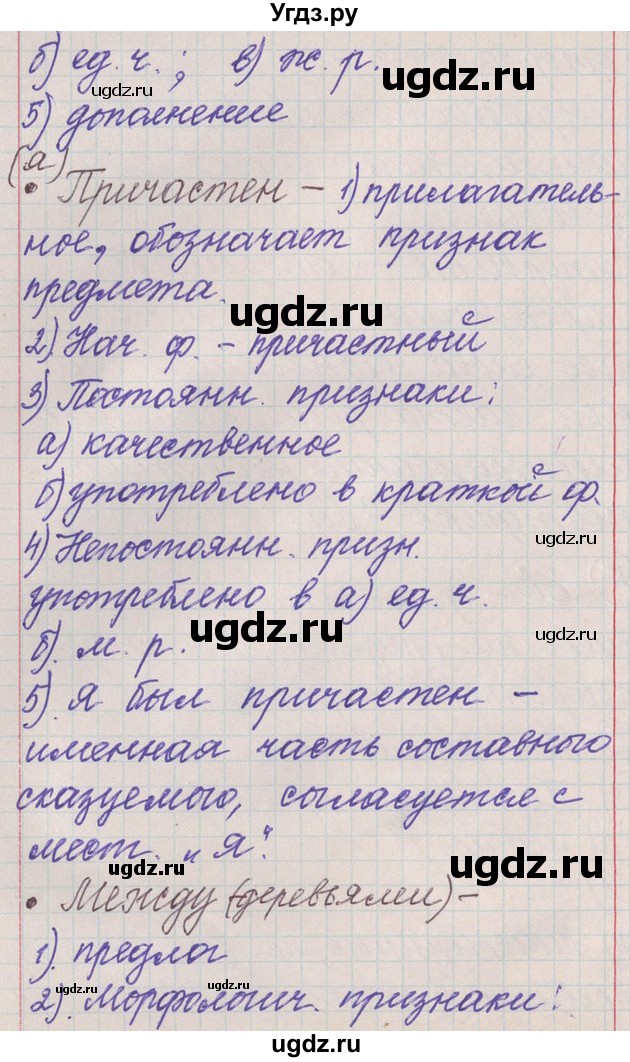 Угдз.ру
б) ед. ч.; в) ж. р.
5) дополнение
(я)
• Причастен – 1) прилагатель-
ное, обозначает признак
предмета.
2) Нач. ф. – причастный
3) Постоянн. признаки:
а) качественное
б) употреблено в краткой ф.
4) Непостоянн. призн.
употреблено в а) ед. ч.
б). м. р.
5). Я был причастен –
именная часть составного
сказуемого, согласуется с
мест. „я".
• Между (деревьями) –
1). предлог
2). Морфологич. признаки:
ugdz.ru
ugdz.ru
ugdz.ru
ugdz.ru
ugdz.ru
ugdz.ru
ugdz.ru
ugdz.ru
ugdz.ru
ugdz.ru
ugdz.ru
ugdz.ru
ugdz.ru